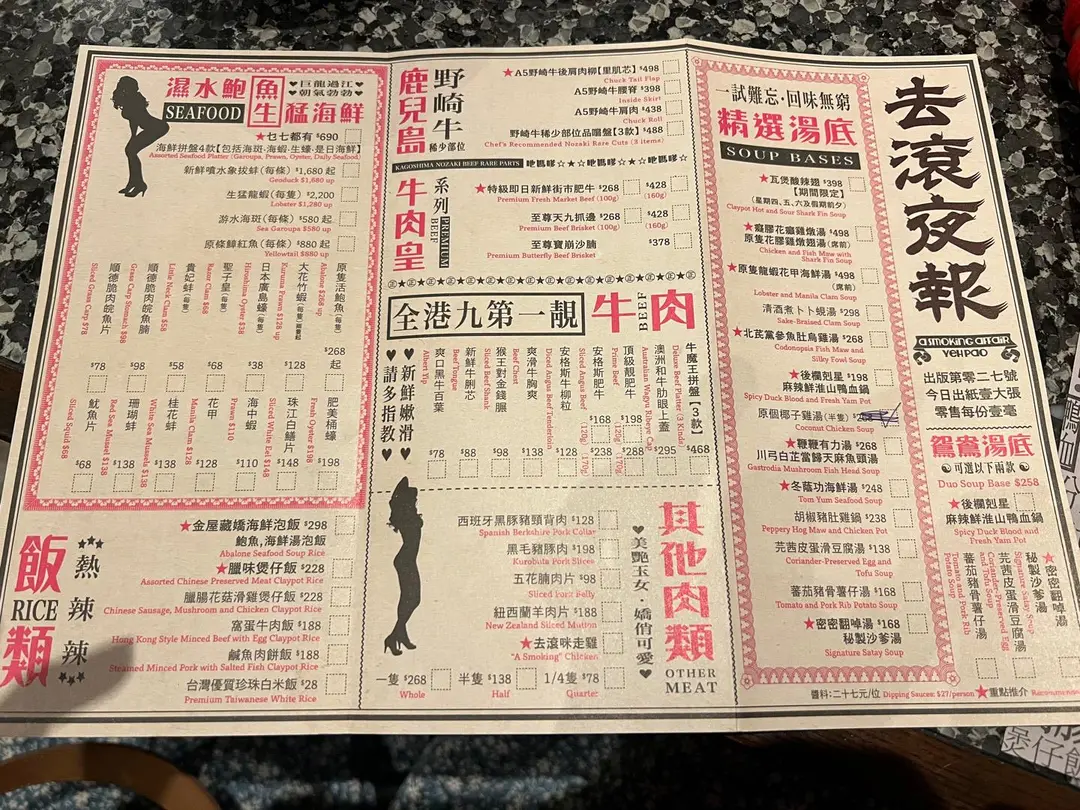 濕水鮑魚生猛海鮮
SEAFOOD
♥巨龍過江♥
朝氣勃勃
★乜七都有 $690
海鮮拼盤4款【包括海斑·海蝦·生蠔·是日海鮮】
Assorted Seafood Platter (Garoupa, Prawn, Oyster, Daily Seafood)
新鮮噴水象拔蚌(每條) $1,680 起
Geoduck $1,680 up
生猛龍蝦(每隻) $2,200
Lobster $1,280 up
游水海斑(每條) $580 起
Sea Garoupa $580 up
原條鰤紅魚(每條) $880 起
Yellowtail $880 up
原隻活鮑魚(每隻) $268 起
Abalone $268 up
大花竹蝦(每隻) $128
Kuruma Prawn $128 up
日本廣島蠔(每隻) $38
Hiroshima Oyster $38
聖子皇(每隻) $68
Razor Clam $68
貴妃蚌(每隻) $58
Little Neck Clam $58
順德脆肉皖魚腩 $98
Grass Carp Stomach $98
順德脆肉皖魚片 $78
Sliced Grass Carp $78
肥美桶蠔 $198
Fresh Oyster $198
珠江白鱔片 $148
Sliced White Eel $148
海中蝦 $110
Prawn $110
花甲 $128
Manila Clam $128
桂花蚌 $138
White Sea Mussels $138
珊瑚蚌 $138
Red Sea Mussel $138
魷魚片 $68
Sliced Squid $68
飯類
RICE
熱辣辣
★金屋藏嬌海鮮泡飯 $298
鮑魚,海鮮湯泡飯
Abalone Seafood Soup Rice
★臘味煲仔飯 $228
Assorted Chinese Preserved Meat Claypot Rice
臘腸花菇滑雞煲仔飯 $228
Chinese Sausage, Mushroom and Chicken Claypot Rice
窩蛋牛肉飯 $188
Hong Kong Style Minced Beef with Egg Claypot Rice
鹹魚肉餅飯 $188
Steamed Minced Pork with Salted Fish Claypot Rice
台灣優質珍珠白米飯 $28
Premium Taiwanese White Rice
鹿兒島
野崎牛
稀少部位
★A5野崎牛後肩肉柳【里肌芯】 $498
Chuck Tail Flap
A5野崎牛腰脊 $398
Inside Skirt
A5野崎牛肩肉 $438
Chuck Roll
野崎牛稀少部位品嚐盤【3款】 $488
Chef's Recommended Nozaki Rare Cuts (3 items)
KAGOSHIMA NOZAKI BEEF RARE PARTS
牛肉皇
系列
PREMIUM BEEF
★特級即日新鮮街市肥牛 $268 $428
Premium Fresh Market Beef (100g) (160g)
至尊天九抓邊 $268 $428
Premium Beef Brisket (100g) (160g)
至尊寶崩沙腩 $378
Premium Butterfly Beef Brisket
全港九第一靚
牛肉
BEEF
♥新鮮嫩滑♥
♥請多指教♥
牛魔王拼盤【3款】 $468
Deluxe Beef Platter (3 Kinds)
澳洲和牛肋眼上蓋 $295
Australian Wagyu Ribeye Cap
頂級靚肥牛 $168 (120g) $288 (170g)
Prime Beef
安格斯肥牛 $168 (120g) $238 (170g)
Sliced Angus Beef
安格斯牛柳粒 $128
Diced Angus Beef Tenderloin
爽滑牛胸爽 $138
Beef Chest
猴王對金錢腱 $98
Sliced Beef Shank
新鮮牛脷芯 $88
Beef Tongue
爽口黑牛百葉 $78
其他肉類
OTHER MEAT
♥美艷玉女·嬌俏可愛♥
西班牙黑豚豬頸背肉 $128
Spanish Berkshire Pork Collar
黑毛豬豚肉 $198
Kurobuta Pork Slices
五花腩肉片 $98
Sliced Pork Belly
紐西蘭羊肉片 $188
New Zealand Sliced Mutton
★去滾咪走雞
"A Smoking" Chicken
一隻 $268 半隻 $138 1/4隻 $78
Whole Half Quarter
一試難忘·回味無窮
精選湯底
SOUP BASES
★瓦煲酸辣翅 $398
【期間限定】
(星期四、五、六及假期前夕)
Claypot Hot and Sour Shark Fin Soup
★癡膠花癲雞燉湯 $498
原隻花膠雞燉翅湯(席前)
Chicken and Fish Maw with
Shark Fin Soup
★原隻龍蝦花甲海鮮湯 $498
(席前)
Lobster and Manila Clam Soup
清酒煮卜卜蜆湯 $298
Sake-Braised Clam Soup
★北芪黨參魚肚烏雞湯 $268
Codonopsis Fish Maw and
Silky Fowl Soup
★後欄剋星 $198
麻辣鮮淮山鴨血鍋
Spicy Duck Blood and Fresh Yam Pot
原個椰子雞湯(半隻)
Coconut Chicken Soup
★鞭鞭有力湯 $268
川芎白芷當歸天麻魚頭湯
Gastrodia Mushroom Fish Head Soup
★冬蔭功海鮮湯 $248
Tom Yum Seafood Soup
胡椒豬肚雞鍋 $238
Peppery Hog Maw and Chicken Pot
芫茜皮蛋滑豆腐湯 $138
Coriander-Preserved Egg and
Tofu Soup
蕃茄豬骨薯仔湯 $168
Tomato and Pork Rib Potato Soup
★密密翻啅湯 $168
秘製沙爹湯
Signature Satay Soup
醬料:二十七元/位 Dipping Sauces: $27/person ★重點推介
去滾夜報
A SMOKING AFFAIR
YEH PAO
出版第零二七號
今日出紙壹大張
零售每份壹毫
鴛鴦湯底
可選以下兩款
Duo Soup Base $258
★後欄剋星
麻辣鮮淮山鴨血鍋
Spicy Duck Blood and
Fresh Yam Pot
★密密翻啅湯
秘製沙爹湯
Signature Satay Soup
芫茜皮蛋滑豆腐湯
Coriander-Preserved Egg
and Tofu Soup
蕃茄豬骨薯仔湯
Tomato and Pork Rib
Potato Soup